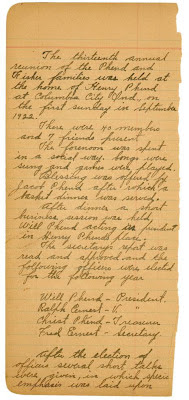 The thirteenth annual
reunion of the Phend and
Fisher families was held at
the home of Henry Phend
at Columbia City Ind, on
the first sunday in September
1922.
There were 40 members
and 5 friends present.
The forenoon was spent
in a social way. Songs were
sung and games were played.
Blessing was asked by
Jacob Phend after which a
basket dinner was served.
After dinner a short
business session was held,
Will Phend acting as president
in Henry Phend's place.
The secretary's report was
read and approved and the
following officers were elected
for the following year
Will Phend - President.
Ralph Ernest - V. "
Christ Phend - Treasurer
Fred Ernest - Secretary.
After the election of
officers several short talks
were given in which special
emphasis was laid upon